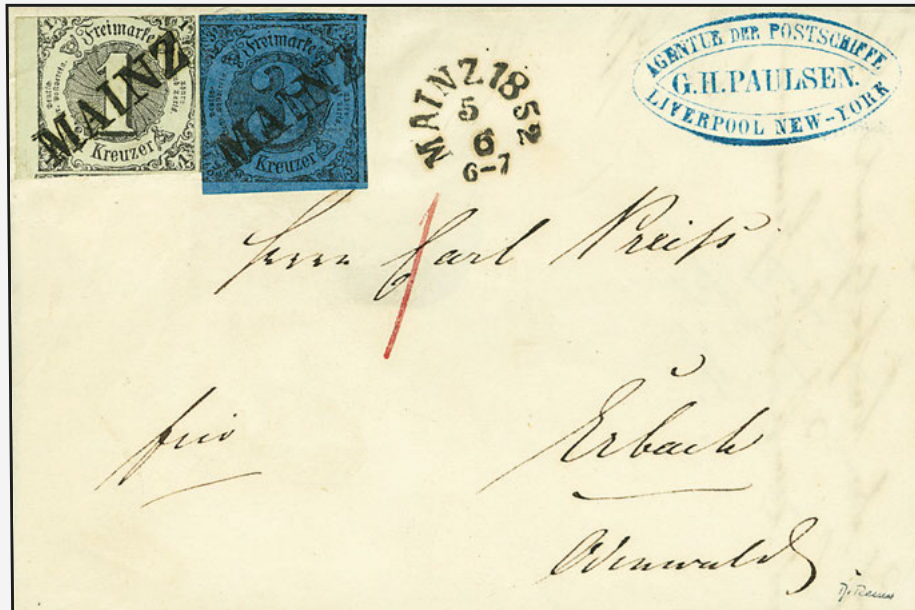 Freimarke
1
Kreuzer
MAINZ
Freimarke
3
Kreuzer
MAINZ
MAINZ 1852
5
6
6-7
AGENTUR DER POSTSCHIFFE
G.H.PAULSEN.
LIVERPOOL NEW-YORK
Herrn Carl Preiss
frco
Erbach
Odenwald